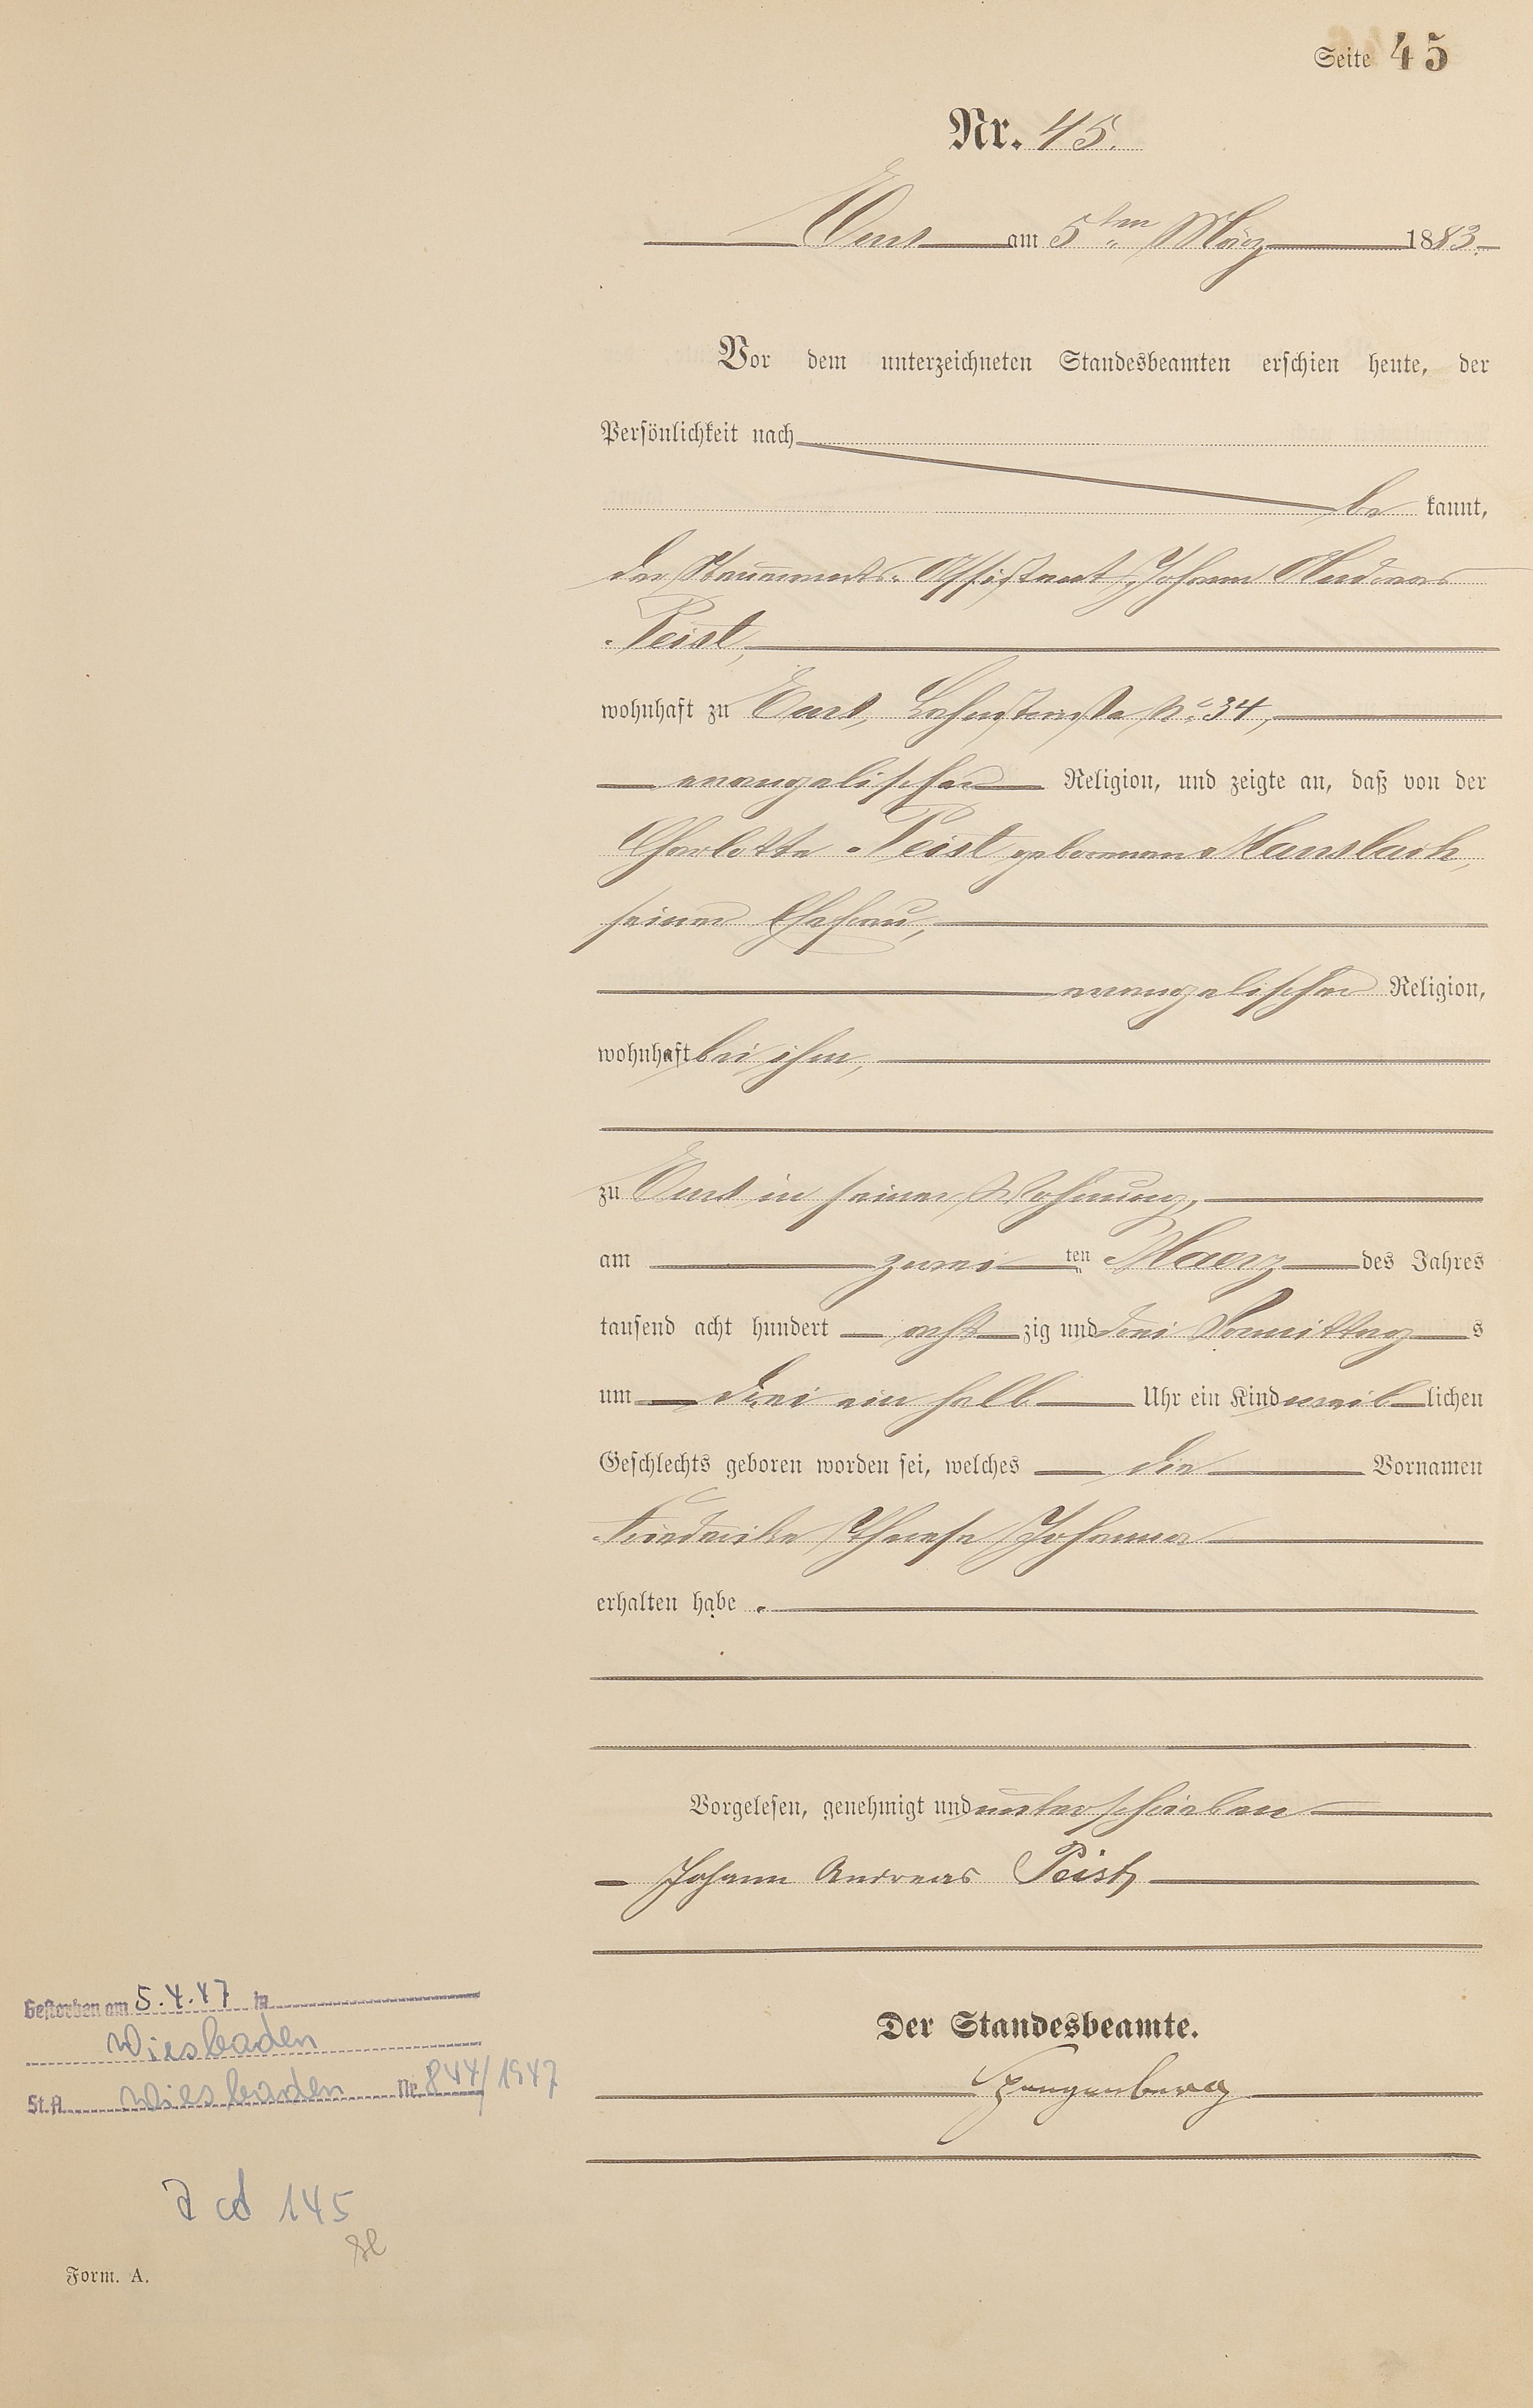 Seite 45
Nr. 45.
Ems am 5ten März 1883.
Vor dem unterzeichneten Standesbeamten erschien heute, der
Persönlichkeit nach
be kannt,
der Assistent Johann Andreas
Peist,
wohnhaft zu Ems, No. 34,
evangelischer Religion, und zeigte an, daß von der
Charlotte Peist geborenen Mansbach,
seiner Ehefrau,
evangelischer Religion,
wohnhaft bei ihm,
zu Ems in seiner Wohnung,
am zwei ten Maerz des Jahres
tausend acht hundert acht zig und drei Vormittag s
um drei ein halb Uhr ein Kind weib lichen
Geschlechts geboren worden sei, welches die Vornamen
Friedericke Therese Johanna
erhalten habe.
Vorgelesen, genehmigt und unterschrieben
Johann Andreas Peist
Gestorben am 5.4.47 in
Wiesbaden
St.A. Wiesbaden Nr. 844/1947
Der Standesbeamte.
Spangenberg
145
Form. A.